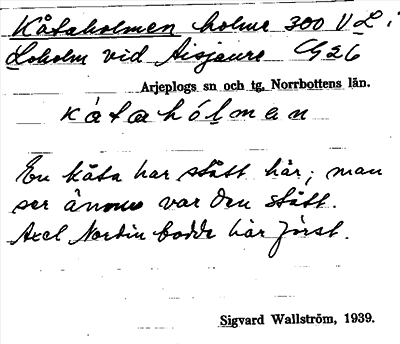 Kåtaholmen holme 300 V L i
Loholm vid Aisjaure G26
Arjeplogs sn och tg, Norrbottens län.
kåtahólman
En kåta har stått här; man
ser ännu var den stått.
Axel Nordin bodde här först.
Sigvard Wallström, 1939.